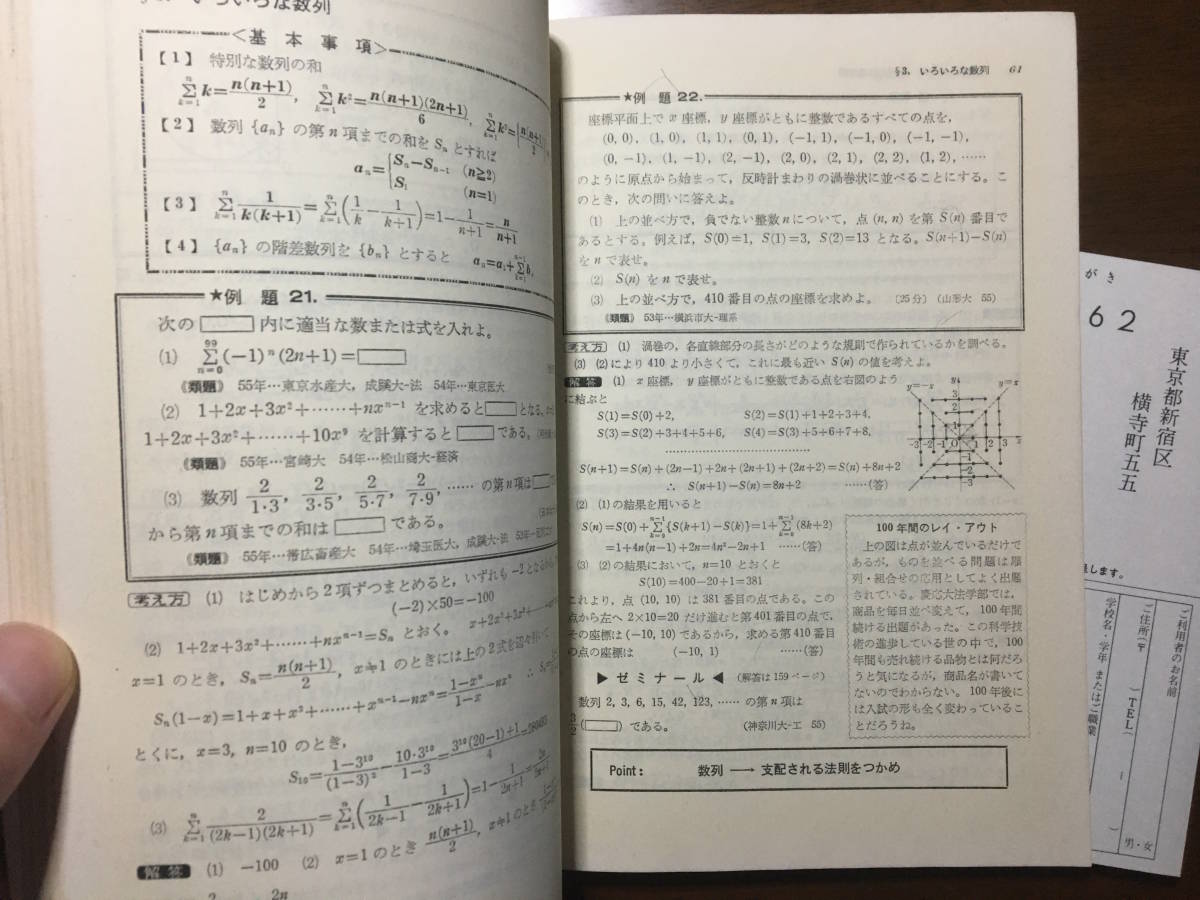 いろいろな数列
<基本事項>
【1】 特別な数列の和
∑k=n(n+1)/2, ∑k²=n(n+1)(2n+1)/6,
【2】 数列 {aₙ} の第 n 項までの和を Sₙ とすれば
aₙ={Sₙ−Sₙ₋₁ (n≧2)
S₁ (n=1)
【3】 ∑1/k(k+1)=∑(1/k−1/(k+1))=1−1/(n+1)=n/(n+1)
【4】 {aₙ} の階差数列を {bₙ} とすると aₙ=a₁+∑bₖ
★例題 21.
次の□内に適当な数または式を入れよ。
(1) ∑(−1)ⁿ(2n+1)=□
《類題》 55年…東京水産大, 成蹊大-法 54年…東京医大
(2) 1+2x+3x²+……+nxⁿ⁻¹ を求めると□となる。
1+2x+3x²+……+10x⁹ を計算すると□である。
《類題》 55年…宮崎大 54年…松山商大-経済
(3) 数列 2/1·3, 2/3·5, 2/5·7, 2/7·9, …… の第 n 項は□
から第 n 項までの和は□である。
《類題》 55年…帯広畜産大 54年…埼玉医大, 成蹊大-法
考え方 (1) はじめから2項ずつまとめると, いずれも −2 となるから
(−2)×50=−100
(2) 1+2x+3x²+……+nxⁿ⁻¹=Sₙ とおく。
x=1 のとき, Sₙ=n(n+1)/2, x≠1 のときには上の2式を辺々引いて
Sₙ(1−x)=1+x+x²+……+xⁿ⁻¹−nxⁿ=(1−xⁿ)/(1−x)−nxⁿ
とくに, x=3, n=10 のとき,
S₁₀=(1−3¹⁰)/(1−3)²−10·3¹⁰/(1−3)=(3¹⁰(20−1)+1)/4
(3) ∑2/(2k−1)(2k+1)=∑(1/(2k−1)−1/(2k+1))=1−1/(2n+1)=2n/(2n+1)
解答 (1) −100 (2) x=1 のとき n(n+1)/2, x≠1 のとき
§3. いろいろな数列 61
★例題 22.
座標平面上で x 座標, y 座標がともに整数であるすべての点を,
(0, 0), (1, 0), (1, 1), (0, 1), (−1, 1), (−1, 0), (−1, −1),
(0, −1), (1, −1), (2, −1), (2, 0), (2, 1), (2, 2), (1, 2), ……
のように原点から始まって, 反時計まわりの渦巻状に並べることにする。こ
のとき, 次の問いに答えよ。
(1) 上の並べ方で, 負でない整数 n について, 点 (n, n) を第 S(n) 番目で
あるとする。例えば, S(0)=1, S(1)=3, S(2)=13 となる。S(n+1)−S(n)
を n で表せ。
(2) S(n) を n で表せ。
(3) 上の並べ方で, 410 番目の点の座標を求めよ。 〔25分〕 (山形大 55)
《類題》 53年…横浜市大-理系
考え方 (1) 渦巻の, 各直線部分の長さがどのような規則で作られているかを調べる。
(3) (2)により 410 より小さくて, これに最も近い S(n) の値を考えよ。
解答 (1) x 座標, y 座標がともに整数である点を右図のよう
に結ぶと
S(1)=S(0)+2, S(2)=S(1)+1+2+3+4,
S(3)=S(2)+3+4+5+6, S(4)=S(3)+5+6+7+8,
………………………………
S(n+1)=S(n)+(2n−1)+2n+(2n+1)+(2n+2)=S(n)+8n+2
∴ S(n+1)−S(n)=8n+2 ……(答)
y=−x y y=x
3
2
−3 −2 −1 O 1 2 3 x
−2
−3
(2) (1)の結果を用いると
S(n)=S(0)+∑{S(k+1)−S(k)}=1+∑(8k+2)
=1+4n(n−1)+2n=4n²−2n+1 ……(答)
(3) (2)の結果において, n=10 とおくと
S(10)=400−20+1=381
これより, 点 (10, 10) は 381 番目の点である。この
点から左へ 2×10=20 だけ進むと第 401 番目の点で,
その座標は (−10, 10) であるから, 求める第 410 番目
の点の座標は (−10, 1) ……(答)
▶ゼミナール◀ (解答は 159 ページ)
数列 2, 3, 6, 15, 42, 123, …… の第 n 項は
3/2 (□) である。 (神奈川大-工 55)
100年間のレイ・アウト
上の図は点が並んでいるだけで
あるが, ものを並べる問題は順
列・組合せの応用としてよく出題
されている。慶応大法学部では,
商品を毎日並べ変えて, 100年間
続ける出題があった。この科学技
術の進歩している世の中で, 100
年間も売れ続ける品物とは何だろ
うと気になるが, 商品名が書いて
ないのでわからない。100年後に
は入試の形も全く変わっているこ
とだろうね。
Point: 数列 ⟶ 支配される法則をつかめ
がき
62
東京都新宿区
横寺町五五
します。
ご利用者のお名前
ご住所(〒
)TEL(
学校名・学年 またはご職業
)
男・女